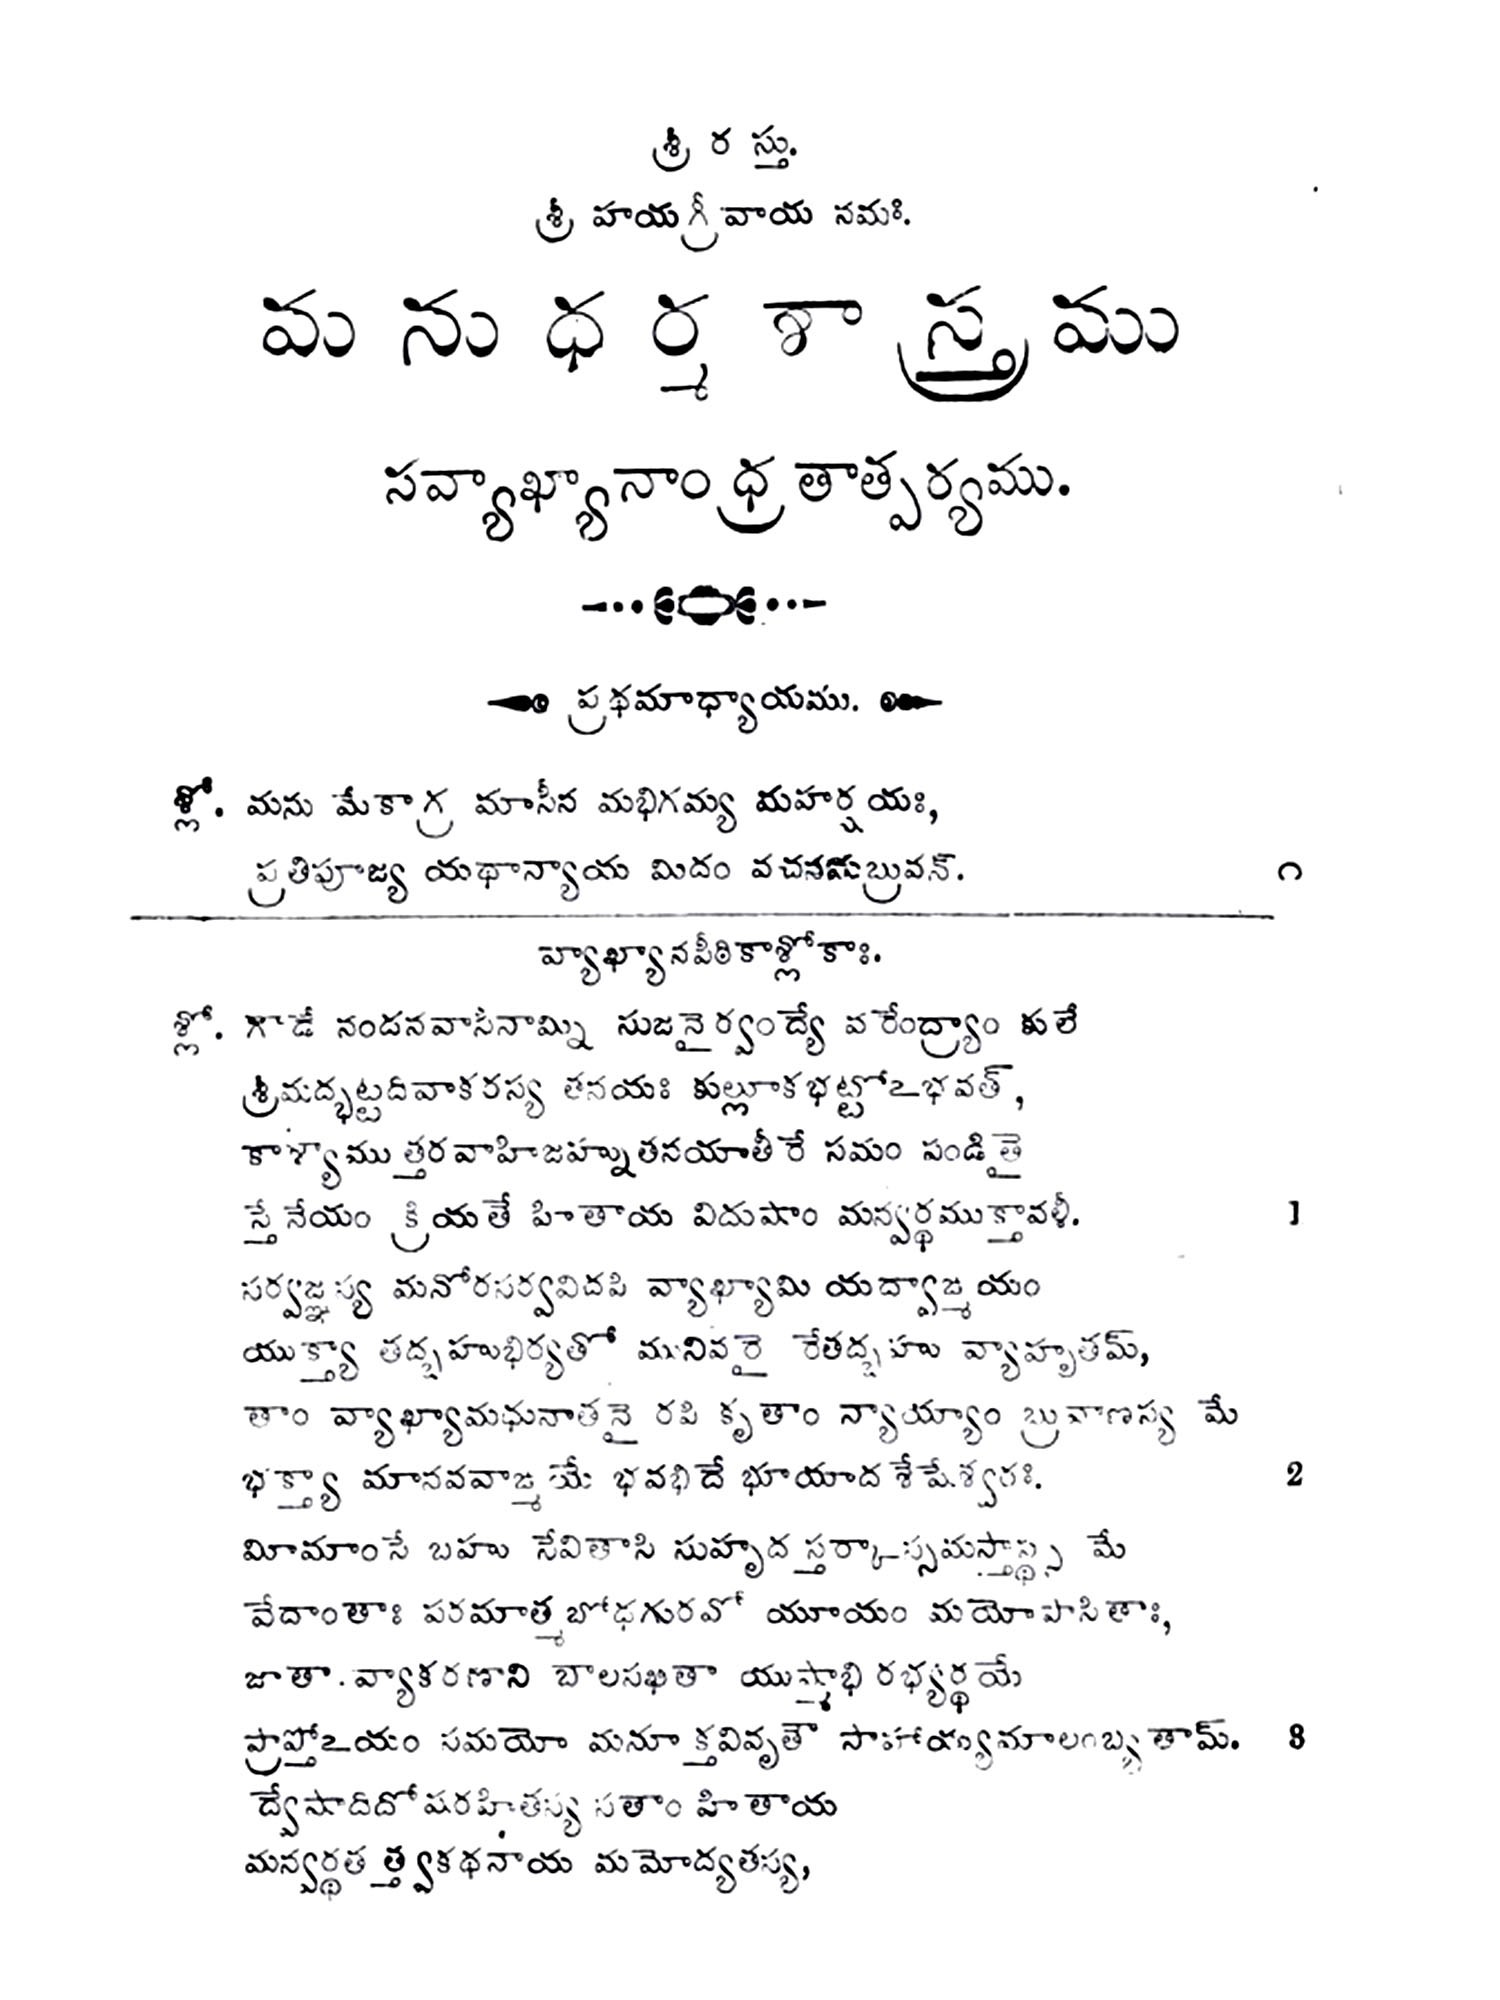 శ్రీ ర స్తు.
శ్రీ హయగ్రీవాయ నమః.
మ ను ధ ర్మ శా స్త్ర ము
సవ్యాఖ్యానాంధ్ర తాత్పర్యము.
ప్రథమాధ్యాయము.
శ్లో. మను మేకాగ్ర మాసీన మభిగమ్య మహర్షయః,
ప్రతిపూజ్య యథాన్యాయ మిదం వచనమబ్రువన్. ౧
వ్యాఖ్యానపీఠికాశ్లోకాః.
శ్లో. గౌడే నందనవాసినామ్ని సుజనైర్వంద్యే వరేంద్ర్యాం కులే
శ్రీమద్భట్టదివాకరస్య తనయః కుల్లూకభట్టోఽభవత్,
కాశ్యాము త్తరవాహిజహ్నుతనయాతీరే సమం పండితై
స్తే నేయం క్రియతే హితాయ విదుషాం మన్వర్థముక్తావళీ. 1
సర్వజ్ఞస్య మనోరసర్వవిదపి వ్యాఖ్యామి యద్వాఙ్మయం
యుక్త్యా తద్బహుభిర్యతో మునివరై రేతద్బహు వ్యాహృతమ్,
తాం వ్యాఖ్యామధునాతనై రపి కృతాం న్యాయ్యాం బ్రువాణస్య మే
భక్త్యా మానవవాఙ్మయే భవభిదే భూయాద శేషేశ్వరః. 2
మీమాంసే బహు సేవితాసి సుహృద స్తర్కాస్సమస్తాస్థ్స మే
వేదాంతాః పరమాత్మబోధగురవో యూయం మయోపాసితాః,
జాతా వ్యాకరణాని బాలసఖితా యుష్మాభి రభ్యర్థయే
ప్రాప్తోఽయం సమయో మనూ క్తవివృతౌ సాహాయ్యమాలంబ్యతామ్. 3
ద్వేషాదిదోషరహితస్య సతాం హితాయ
మన్వర్థత త్త్వకథనాయ మమోద్యతస్య,